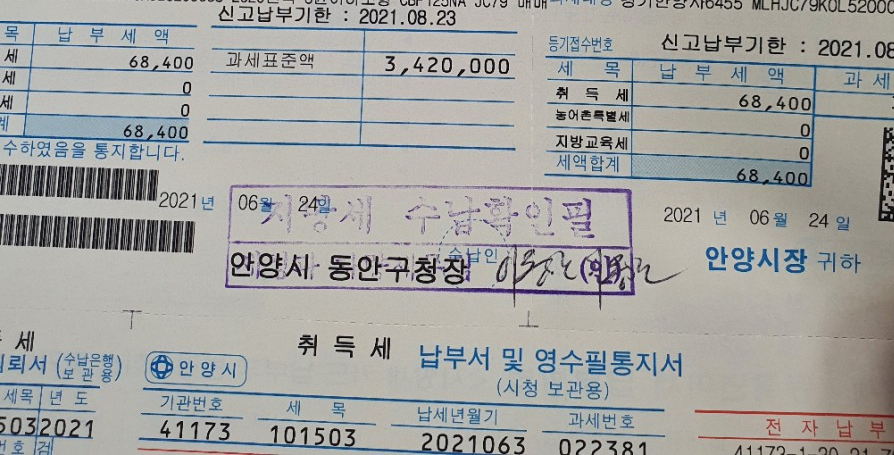 신고납부기한 : 2021.08.23
목 납 부 세 액
세 68,400
세 0
세 0
계 68,400
수하였음을 통지합니다.
과세표준액 3,420,000
등기접수번호 신고납부기한 : 2021.08
세 목 납 부 세 액 과 세
취 득 세 68,400
농어촌특별세 0
지방교육세 0
세액합계 68,400
2021년 06월 24일
지방세 수납확인필
안양시 동안구청장 수납인 (인)
2021 년 06월 24 일
안양시장 귀하
취 득 세 납부서 및 영수필통지서
(시청 보관용)
세
뢰서 (수납은행 보 관 용)
세목 년 도
503 2021
번호 검
안 양 시
기관번호 세 목 납세년월기 과세번호
41173 101503 2021063 022381
전 자 납 부